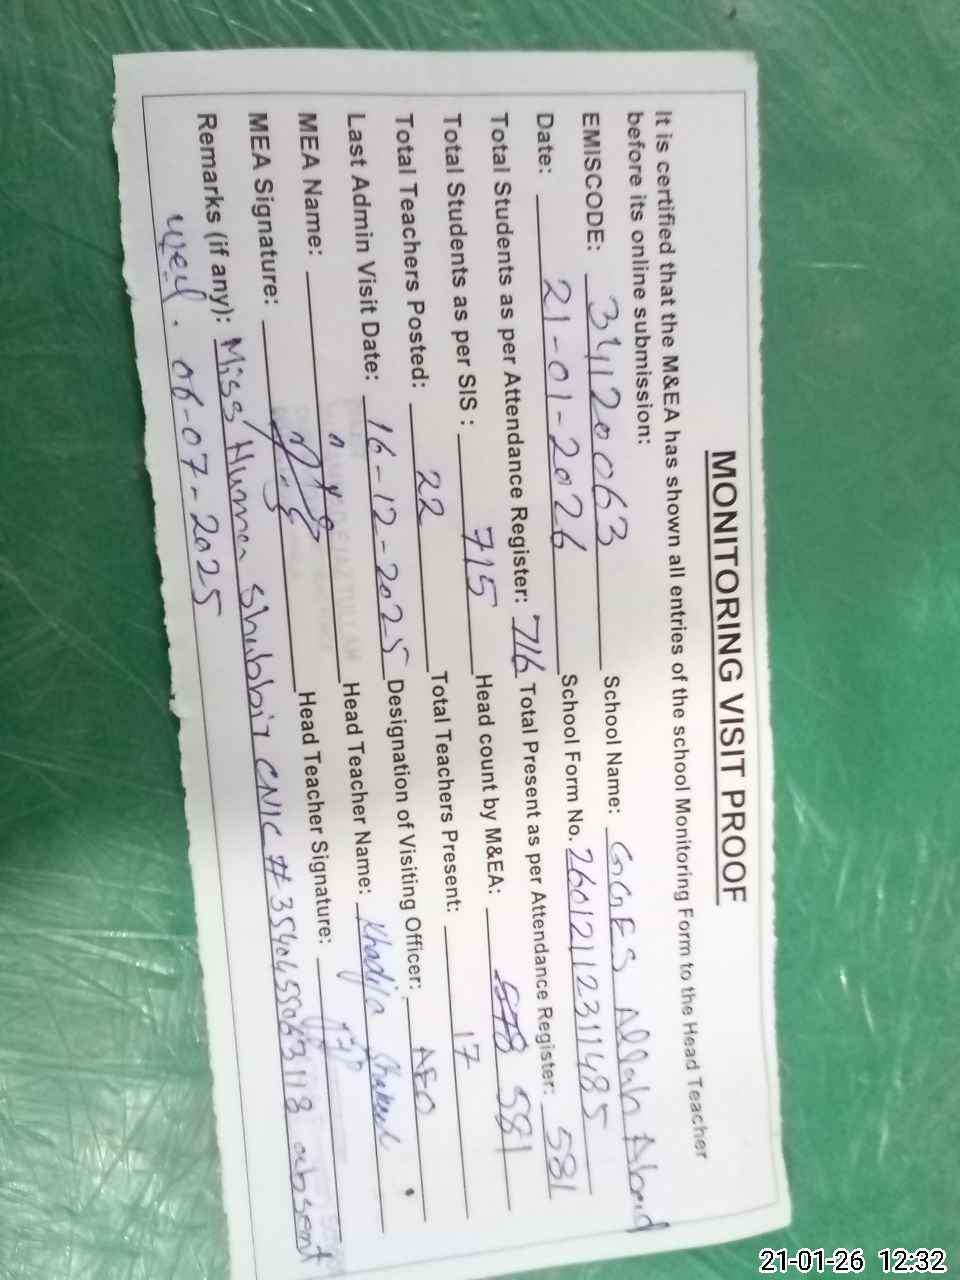 MONITORING VISIT PROOF
It is certified that the M&EA has shown all entries of the school Monitoring Form to the Head Teacher
before its online submission:
EMISCODE: 34120063 School Name: GGES Allah Abad
Date: 21-01-2026 School Form No. 2601211231485
Total Students as per Attendance Register: 716 Total Present as per Attendance Register: 581
Total Students as per SIS : 715 Head count by M&EA: 578 581
Total Teachers Posted: 22 Total Teachers Present: 17
Last Admin Visit Date: 16-12-2025 Designation of Visiting Officer: AEO
MEA Name: Head Teacher Name: Khadija Shakeel
MEA Signature: Head Teacher Signature:
Remarks (if any): Miss Shabbir CNIC # absent
w.e.f. 06-07-2025
21-01-26 12:32